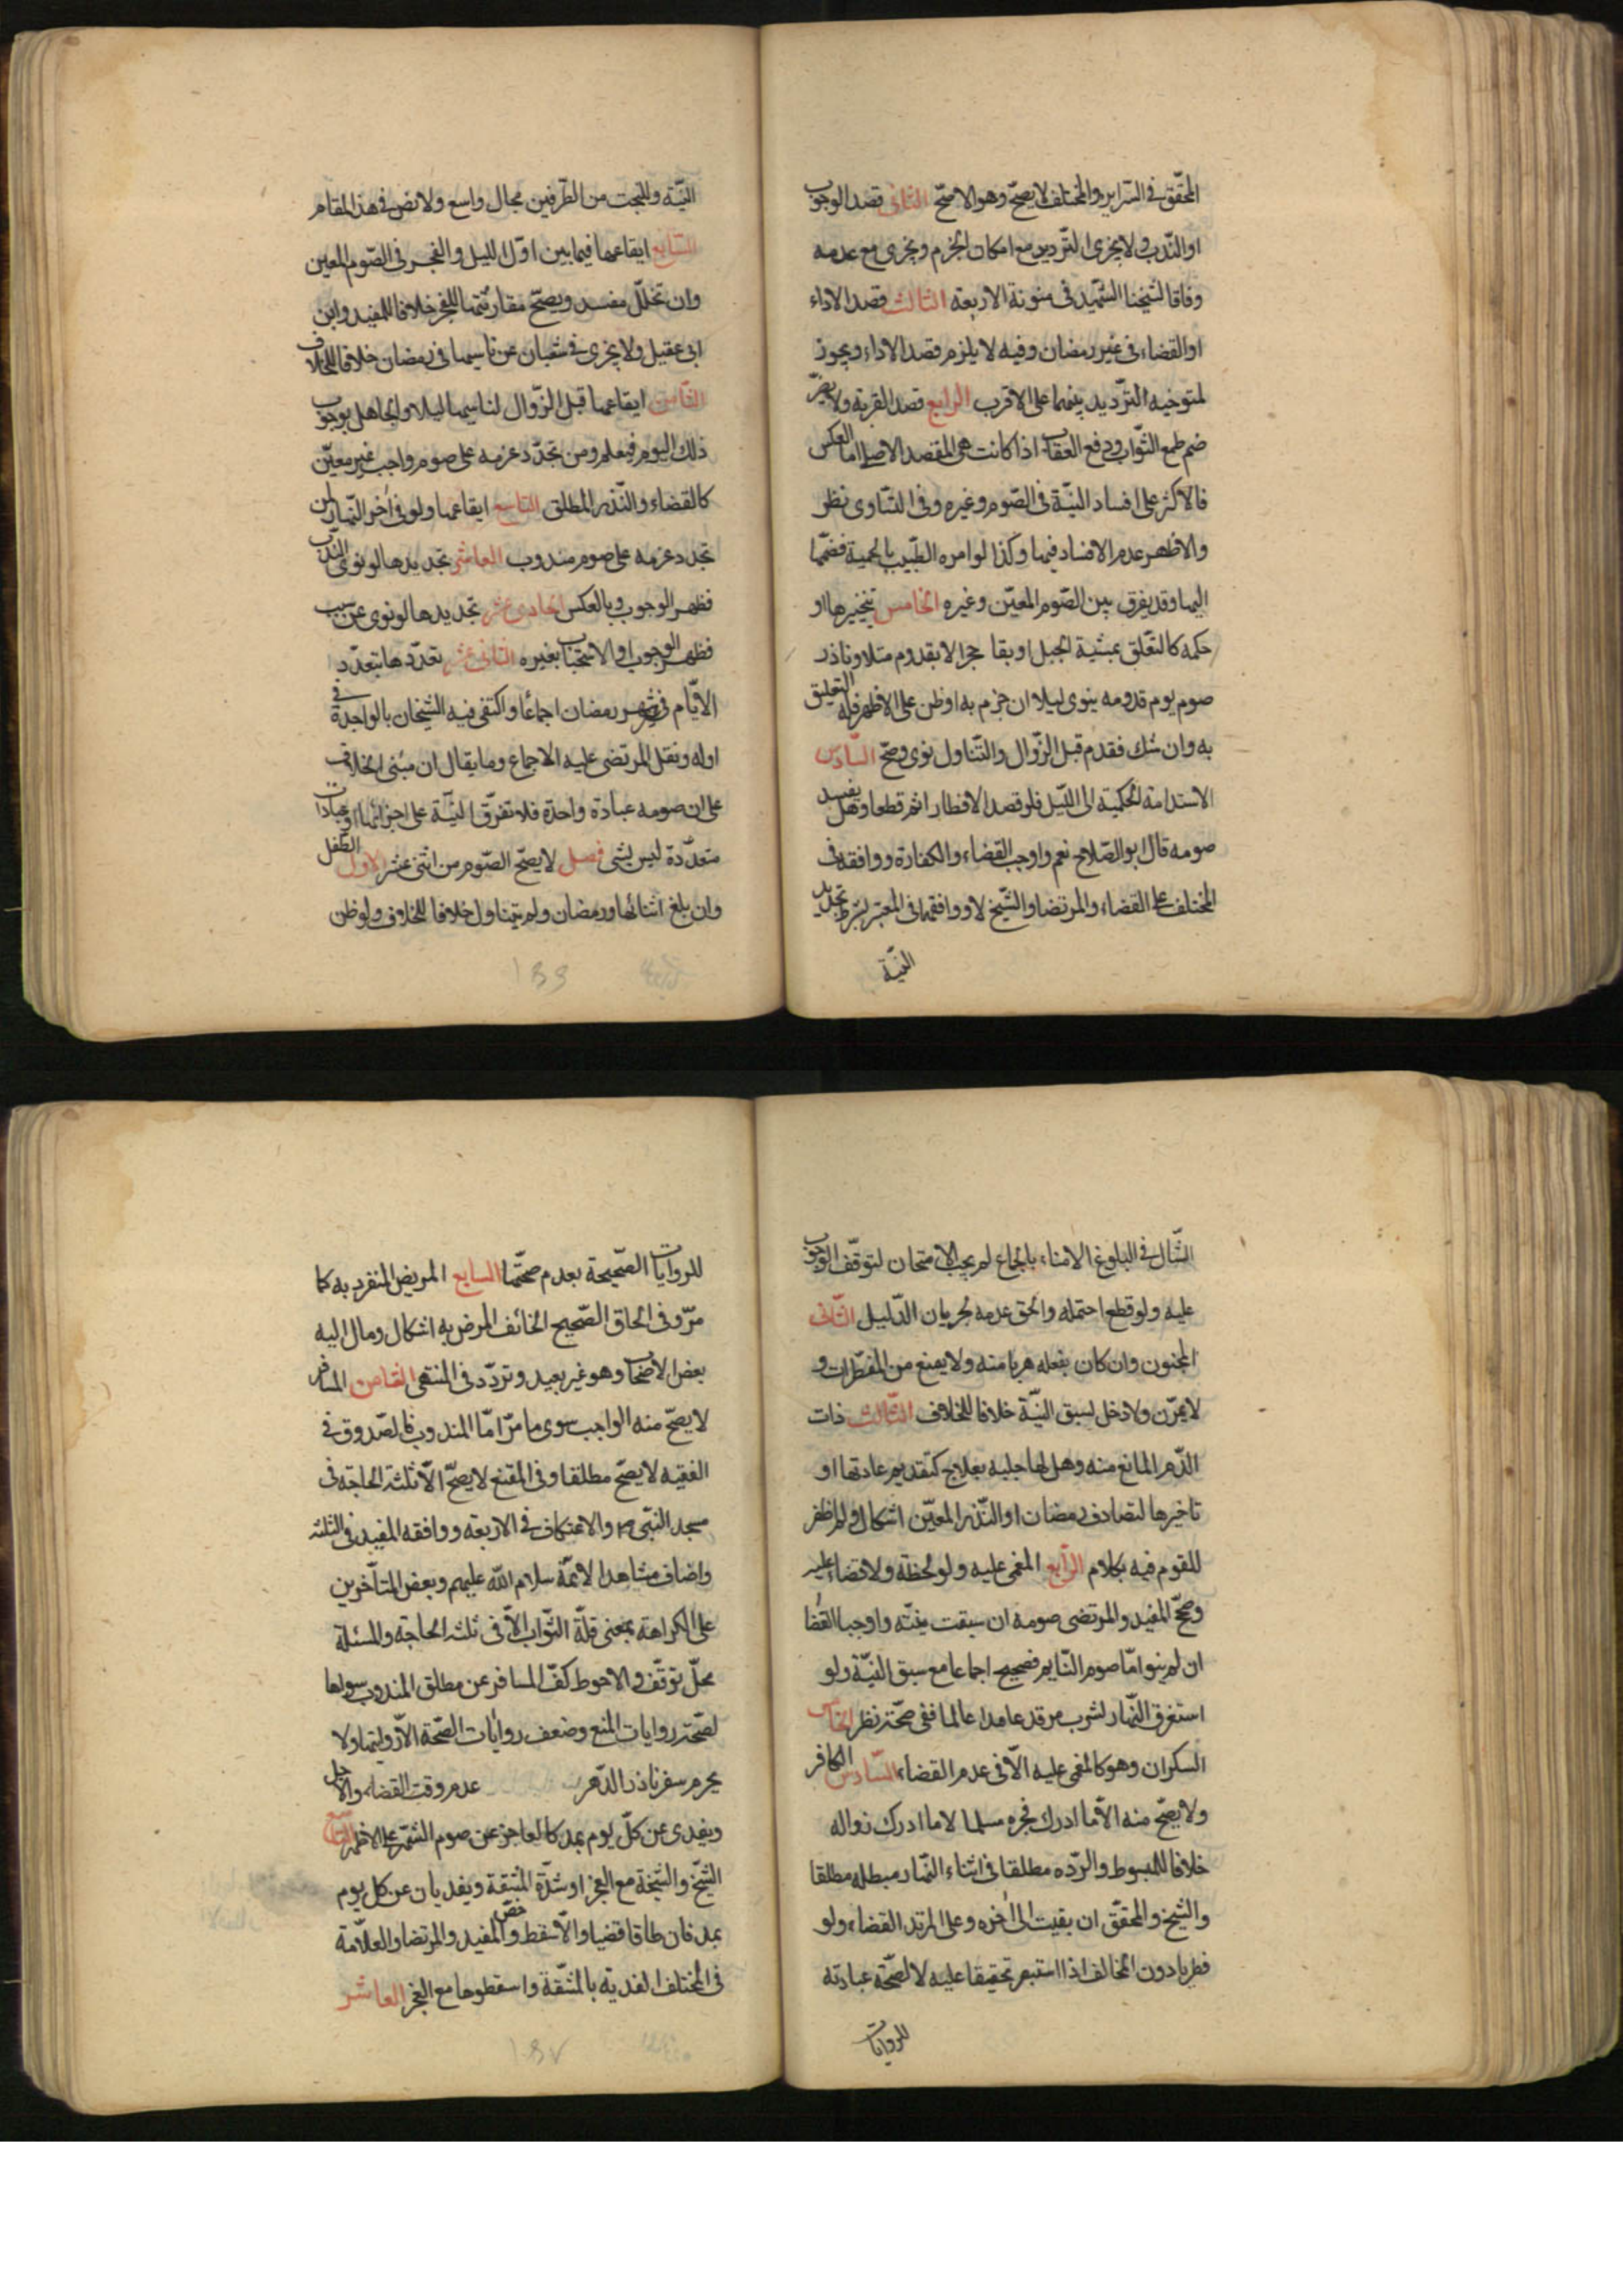 المحقّق في السّراير والمختلف لا يصحّ وهو الاصحّ الثاني قصد الوجوب
او النّدب ولا يجزى التّرديد مع امكان الجزم ويجزى مع عدمه
وفاقا لشيخنا الشّهيد في مئونة الاربعة الثالث قصد الاداء
او القضاء في غير رمضان وفيه لا يلزم قصد الاداء ويجوز
لمتوخيه التّرديد بينهما على الاقرب الرابع قصد القربة ولا يضرّ
ضم طمع الثّواب ودفع العقاب اذا كانت هى المقصد الاصلى اما العكس
فالاكثر على افساد النيّة في الصّوم وغيره وفي التّساوى نظر
والاظهر عدم الافساد فيهما وكذا لو امره الطّبيب بالحمية فضمّها
اليها وقد يفرق بين الصّوم المعيّن وغيره الخامس تنجيزها او
حكمه كالتّعلّق بمشية الجبل او بقا حجر الا بقدوم مثلا وناذر
صوم يوم قدومه ينوى ليلا ان جزم به او ظن على الاظهر فله التعليق
به وان شك فقدم قبل الزّوال والتّناول نوى وصحّ السّادس
الاستدامة الحكمية الى اللّيل فلو قصد الافطار اثم قطعا وهل يفسد
صومه قال ابو الصّلاح نعم واوجب القضاء والكفارة ووافقه في
المختلف على القضاء والمرتضا والشّيخ لا ووافقهما في المعتبر بشرط تجديد
النيّة
النيّة وللبحث من الطّرفين مجال واسع ولا نص في هذا المقام
السّابع ايقاعها فيما بين اوّل الليل والفجر في الصّوم المعين
وان تخلّل مفسد ويصحّ مقارنتها للفجر خلافا للمفيد وابن
ابى عقيل ولا يجزى في شعبان عن ناسيها في رمضان خلافا للخلاف
الثّامن ايقاعها قبل الزّوال لناسيها ليلا والجاهل بوجوب
ذلك اليوم فيعلم ومن تجدّد عزمه على صوم واجب غير معيّن
كالقضاء والنّذر المطلق التاسع ايقاعها ولو في آخر النّهار لمن
تجدد عزمه على صوم مندوب العاشر تجديدها لو نوى الندب
فظهر الوجوب وبالعكس الحادى عشر تجديدها لو نوى عن سبب
فظهر الوجوب او الاستحباب بغيره الثّانى عشر تعدّدها بتعدّد
الايّام في شهر رمضان اجماعًا واكتفى فيه الشيخان بالواحدة في
اوله ونقل المرتضى عليه الاجماع وما يقال ان مبنى الخلاف
على ان صومه عبادة واحدة فلا تفرّق النيّة على اجزائها او عبادات
متعدّدة ليس بشى فصل لا يصحّ الصّوم من اثنى عشر الاول الطّفل
وان بلغ اثنائها ورمضان ولم يتناول خلافا للخلاف ولو ظن
السّال في البلوغ الامناء بالجماع لم يجب الامتحان لتوقّف الوجوب
عليه ولو قطع احتمله والحق عدمه لجريان الدّليل الثّانى
المجنون وان كان بفعله هربا منه ولا يمنع من المفطّرات و
لا يمرّن ولا دخل لسبق النيّة خلافا للخلاف الثّالث ذات
الدّم المانع منه وهل لها جلبه بعلاج كتقديم عادتها او
تاخيرها لتصادف رمضان او النّذر المعيّن اشكال ولم اظفر
للقوم فيه بكلام الرّابع المغمى عليه ولو لحظة ولا قضاء عليه
وصحّ المفيد والمرتضى صومه ان سبقت نيّته واوجبا القضا
ان لم ينو امّا صوم النّايم فصحيح اجماعا مع سبق النيّة ولو
استغرق النّهار لشرب مرقد عامدا عالما ففى صحّته نظر الخامس
السكران وهو كالمغمى عليه الّا في عدم القضاء السّادس الكافر
ولا يصحّ منه الّا ما ادرك فجره مسلما لا ما ادرك زواله
خلافا للمبسوط والرّدّه مطلقا في اثناء النّهار مبطله مطلقا
والشيخ والمحقّق ان بقيت الى آخره وعلى المرتد القضاء ولو
فطريا دون المخالف اذا استبصر تخفيفا عليه لا لصحّة عبادته
للروايات
للروايات الصّحيحة بعدم صحّتها السابع المريض المنفرد به كما
مرّ وفي الحاق الصّحيح الخائف المرض به اشكال ومال اليه
بعض الاصحاب وهو غير بعيد وتردّد في المنتهى الثامن المسافر
لا يصحّ منه الواجب سوى ما مرّ امّا المندوب فالصّدوق في
الفقيه لا يصحّ مطلقا وفي المقنع لا يصحّ الّا ثلثة الحاجة في
مسجد النبّى ص والاعتكاف في الاربعة ووافقه المفيد في الثلثة
واضاف مشاهد الائمّة سلام اللّه عليهم وبعض المتأخّرين
على الكراهة بمعنى قلّة الثّواب الّا في ثلثة الحاجة والمسئلة
محلّ توقّف والاحوط كفّ المسافر عن مطلق المندوب سواها
لصحّة روايات المنع وضعف روايات الصّحة الّا روايتها ولا
يحرم سفر ناذر الدّهر عدم وقت القضاء والاجل
ويفدى عن كلّ يوم بمد كالعاجز عن صوم الشهر على الاظهر التاسع
الشّيخ والشّيخة مع العجز او شدّة المشقة ويفديان عن كل يوم
بمد فان طاقا قضيا والّا سقط وخصّ المفيد والمرتضا والعلّامة
في المختلف الفدية بالمشقّة واسقطوها مع العجز العاشر